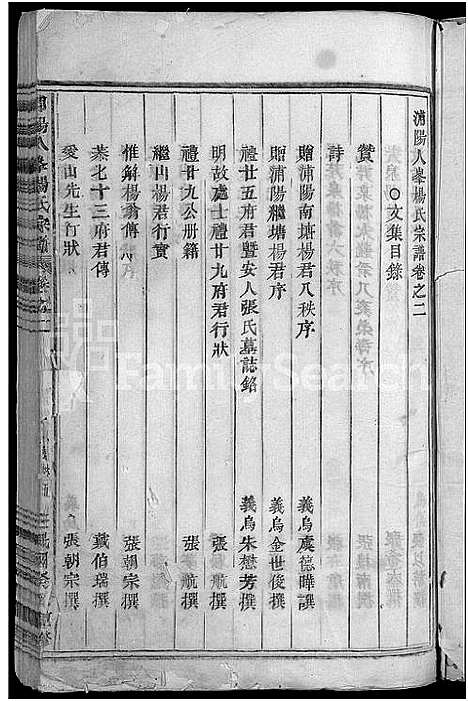 浦陽人峯楊氏宗譜卷之二
文集目錄
贊
詩
贈浦陽南塘楊君八秩序 義烏虞德曄譔
贈浦陽繼塘楊君序 義烏金世俊撰
禮廿五府君暨安人張氏墓誌銘 義烏朱懋芳撰
明故處士禮廿九府君行狀 張 航撰
禮廿九公册籍 張 航撰
繼山楊君行實
惟解楊翁傳 張朝宗撰
恭七十三府君傳 戴伯瑞撰
愛山先生行狀 義烏張朝宗撰
FamilySearch